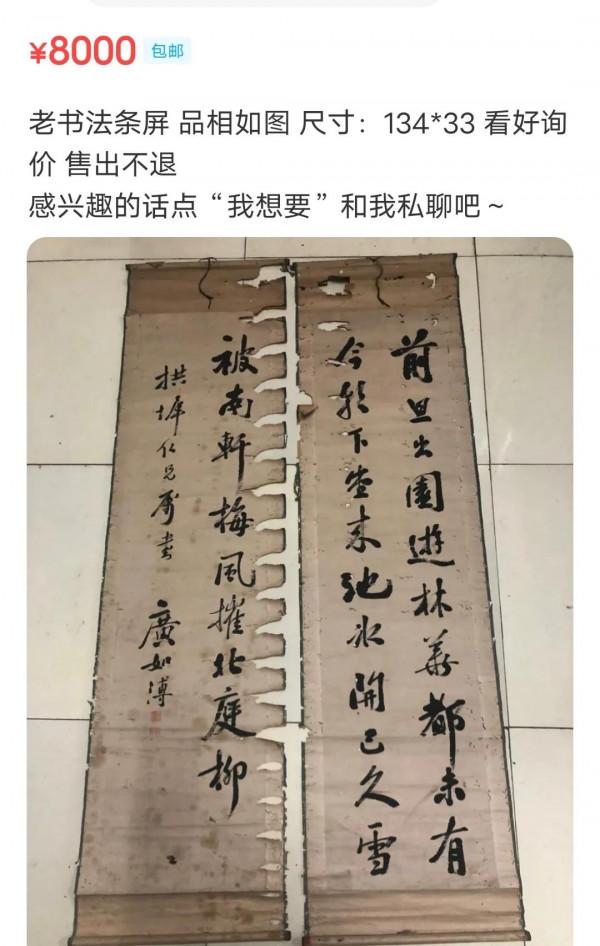 ¥8000 包邮
老书法条屏 品相如图 尺寸：134*33 看好询
价 售出不退
感兴趣的话点“我想要”和我私聊吧～
前旦出園遊林華都未有
今朝下堂来池氷開已久雪
被南軒梅風摧北庭柳
拱墀仁兄屬書
廣如溥